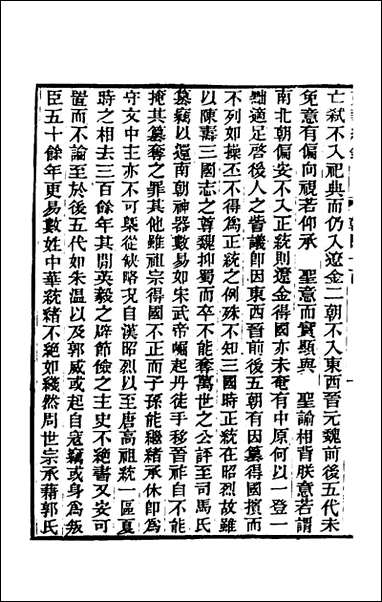 亡弒不入祀典而仍入遼金二朝不入東西晉元魏前後五代未
免意有偏向視若仰承　聖意而實顯與　聖諭相背朕意若謂
南北朝偏安不入正統則遼金得國亦未奄有中原何以一登一
黜適足啓後人之訾議即因東西晉前後五朝有因篡得國擯而
不列如操丕不得爲正統之例殊不知三國時正統在昭烈故雖
以陳壽三國志之尊魏抑蜀而卒不能奪萬世之公評至司馬氏
篡竊以還南朝神器數易如宋武帝崛起丹徒手移晉祚自不能
掩其篡奪之罪其他雖祖宗得國不正而子孫能繼緒承休即爲
守文中主亦不可槩從缺略况自漢昭烈以至唐高祖統一區夏
時之相去三百餘年其間英毅之辟節儉之主史不絶書又安可
置而不論至於後五代如朱溫以及郭威或起自寇竊或身爲叛
臣五十餘年更易數姓中華統緒不絶如綫然周世宗承藉郭氏